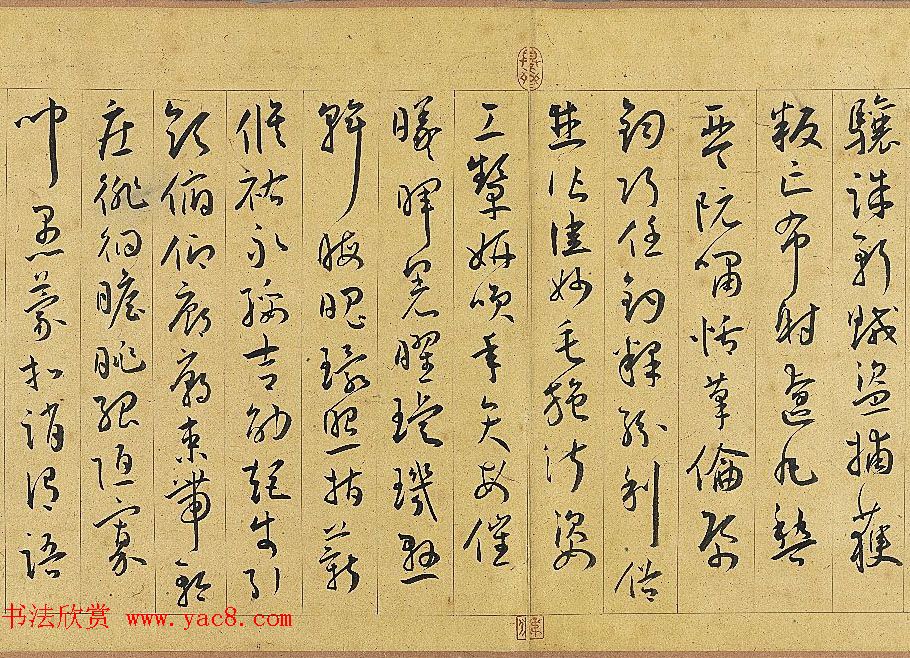 驤誅斬賊盜捕獲
叛亡布射遼丸嵇
琴阮嘯恬筆倫紙
鈞巧任釣釋紛利俗
並皆佳妙毛施淑姿
工顰妍笑年矢每催
曦暉晃曜璇璣懸
斡晦魄環照指薪
修祜永綏吉劭矩步引
領俯仰廊廟束帶矜
莊徘徊瞻眺孤陋寡
聞愚蒙等誚謂語
书法欣赏 www.yac8.com